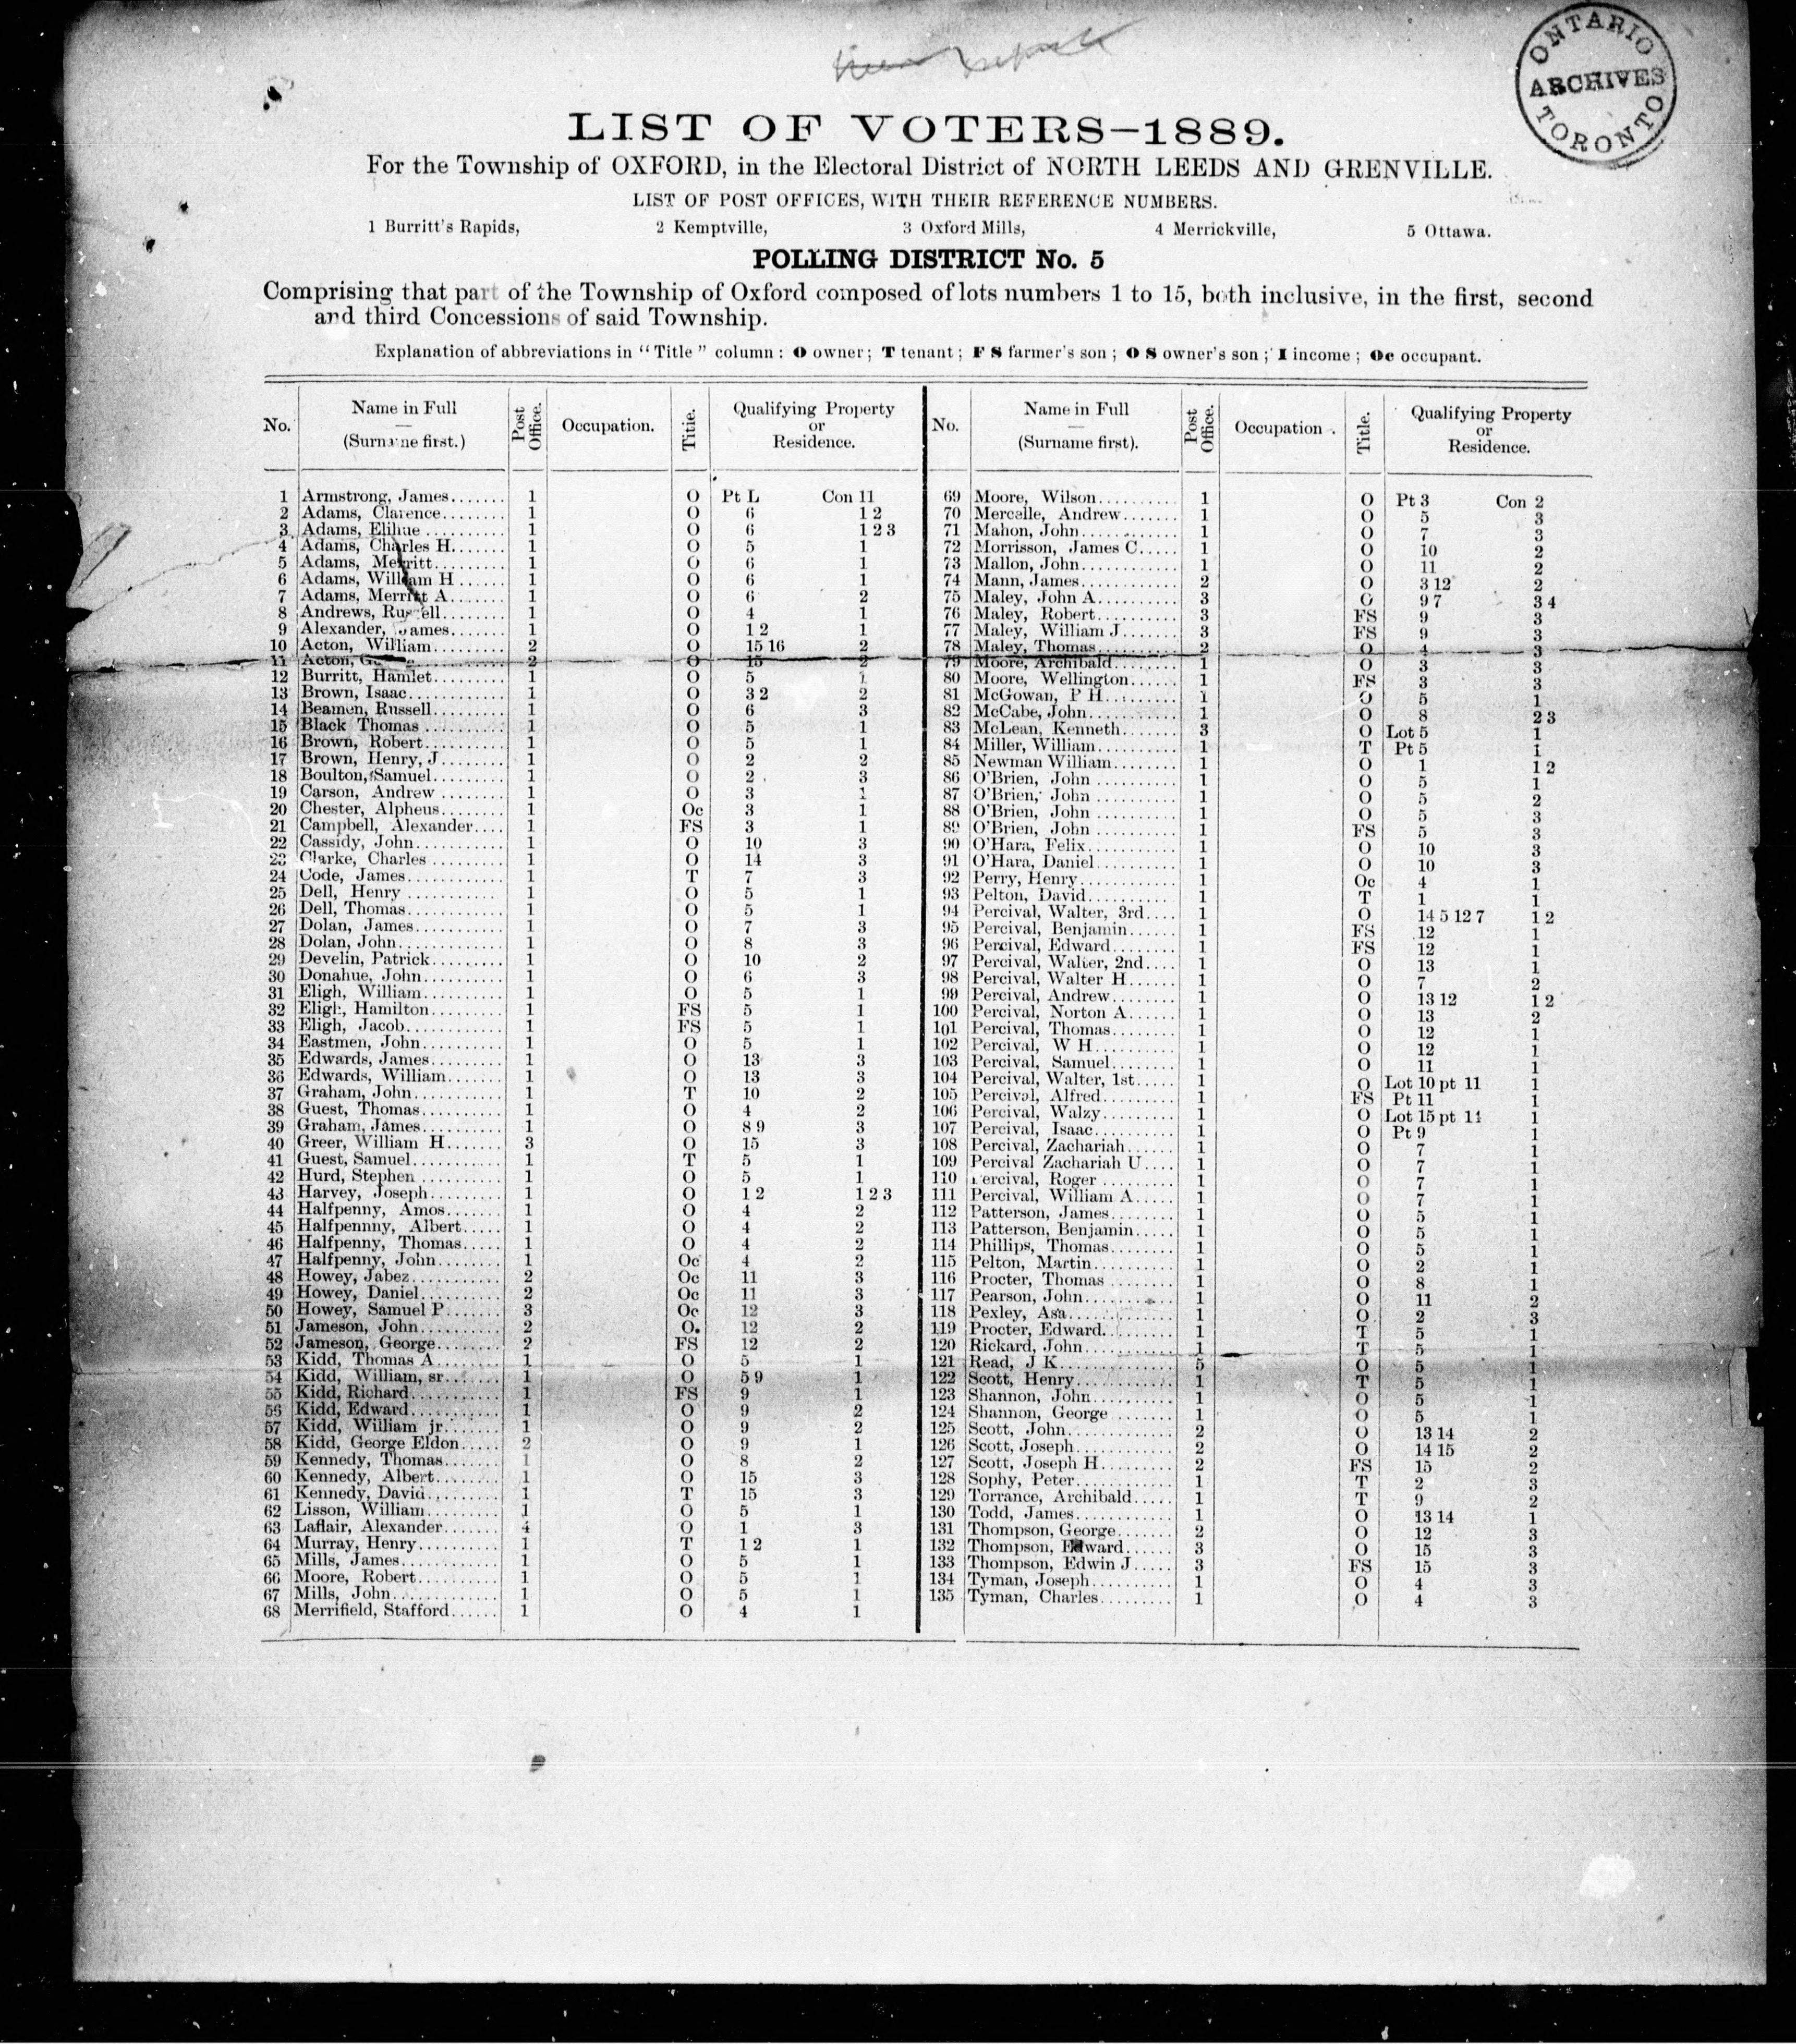 ONTARIO
ARCHIVES
TORONTO
LIST OF VOTERS—1889.
For the Township of OXFORD, in the Electoral District of NORTH LEEDS AND GRENVILLE.
LIST OF POST OFFICES, WITH THEIR REFERENCE NUMBERS.
1 Burritt's Rapids, 2 Kemptville, 3 Oxford Mills, 4 Merrickville, 5 Ottawa.
POLLING DISTRICT No. 5
Comprising that part of the Township of Oxford composed of lots numbers 1 to 15, both inclusive, in the first, second
and third Concessions of said Township.
Explanation of abbreviations in "Title" column: O owner; T tenant; F S farmer's son; O S owner's son; I income; Oc occupant.
No. Name in Full (Surname first.) Post Office. Occupation. Title. Qualifying Property or Residence.
1 Armstrong, James....... 1 O Pt L Con 11
2 Adams, Clarence........ 1 O 6 1 2
3 Adams, Elihue.......... 1 O 6 1 2 3
4 Adams, Charles H...... 1 O 5 1
5 Adams, Merritt......... 1 O 6 1
6 Adams, William H...... 1 O 6 1
7 Adams, Merritt A....... 1 O 6 2
8 Andrews, Russell........ 1 O 4 1
9 Alexander, James....... 1 O 1 2 1
10 Acton, William......... 2 O 15 16 2
11 Acton, 2 O 15 2
12 Burritt, Hamlet......... 1 O 5 1
13 Brown, Isaac........... 1 O 3 2 2
14 Beamen, Russell......... 1 O 6 3
15 Black Thomas.......... 1 O 5 1
16 Brown, Robert.......... 1 O 5 1
17 Brown, Henry, J........ 1 O 2 2
18 Boulton, Samuel......... 1 O 2 3
19 Carson, Andrew........ 1 O 3 1
20 Chester, Alpheus........ 1 Oc 3 1
21 Campbell, Alexander.... 1 FS 3 1
22 Cassidy, John........... 1 O 10 3
23 Clarke, Charles......... 1 O 14 3
24 Code, James............ 1 T 7 3
25 Dell, Henry............ 1 O 5 1
26 Dell, Thomas........... 1 O 5 1
27 Dolan, James........... 1 O 7 3
28 Dolan, John............ 1 O 8 3
29 Develin, Patrick......... 1 O 10 2
30 Donahue, John.......... 1 O 6 3
31 Eligh, William.......... 1 O 5 1
32 Eligh, Hamilton......... 1 FS 5 1
33 Eligh, Jacob............ 1 FS 5 1
34 Eastmen, John.......... 1 O 5 1
35 Edwards, James......... 1 O 13 3
36 Edwards, William....... 1 O 13 3
37 Graham, John........... 1 T 10 2
38 Guest, Thomas.......... 1 O 4 2
39 Graham, James.......... 1 O 8 9 3
40 Greer, William H....... 3 O 15 3
41 Guest, Samuel........... 1 T 5 1
42 Hurd, Stephen.......... 1 O 5 1
43 Harvey, Joseph.......... 1 O 1 2 1 2 3
44 Halfpenny, Amos........ 1 O 4 2
45 Halfpennny, Albert..... 1 O 4 2
46 Halfpenny, Thomas..... 1 O 4 2
47 Halfpenny, John........ 1 Oc 4 2
48 Howey, Jabez........... 2 Oc 11 3
49 Howey, Daniel.......... 2 Oc 11 3
50 Howey, Samuel P....... 3 Oc 12 3
51 Jameson, John.......... 2 O. 12 2
52 Jameson, George........ 2 FS 12 2
53 Kidd, Thomas A........ 1 O 5 1
54 Kidd, William, sr....... 1 O 5 9 1
55 Kidd, Richard........... 1 FS 9 1
56 Kidd, Edward........... 1 O 9 2
57 Kidd, William jr........ 1 O 9 2
58 Kidd, George Eldon..... 2 O 9 1
59 Kennedy, Thomas....... 1 O 8 2
60 Kennedy, Albert........ 1 O 15 3
61 Kennedy, David......... 1 T 15 3
62 Lisson, William......... 1 O 5 1
63 Laflair, Alexander....... 4 O 1 3
64 Murray, Henry.......... 1 T 1 2 1
65 Mills, James............ 1 O 5 1
66 Moore, Robert.......... 1 O 5 1
67 Mills, John............. 1 O 5 1
68 Merrifield, Stafford...... 1 O 4 1
No. Name in Full (Surname first). Post Office. Occupation. Title. Qualifying Property or Residence.
69 Moore, Wilson.......... 1 O Pt 3 Con 2
70 Mercalle, Andrew....... 1 O 5 3
71 Mahon, John............ 1 O 7 3
72 Morrisson, James C..... 1 O 10 2
73 Mallon, John............ 1 O 11 2
74 Mann, James............ 2 O 3 12 2
75 Maley, John A.......... 3 O 9 7 3 4
76 Maley, Robert.......... 3 FS 9 3
77 Maley, William J....... 3 FS 9 3
78 Maley, Thomas.......... 2 O 4 3
79 Moore, Archibald........ 1 O 3 3
80 Moore, Wellington...... 1 FS 3 3
81 McGowan, P H......... 1 O 5 1
82 McCabe, John........... 1 O 8 2 3
83 McLean, Kenneth....... 3 O Lot 5 1
84 Miller, William.......... 1 T Pt 5 1
85 Newman William........ 1 O 1 1 2
86 O'Brien, John.......... 1 O 5 1
87 O'Brien, John.......... 1 O 5 2
88 O'Brien, John.......... 1 O 5 3
89 O'Brien, John.......... 1 FS 5 3
90 O'Hara, Felix........... 1 O 10 3
91 O'Hara, Daniel.......... 1 O 10 3
92 Perry, Henry............ 1 Oc 4 1
93 Pelton, David........... 1 T 1 1
94 Percival, Walter, 3rd.... 1 O 14 5 12 7 1 2
95 Percival, Benjamin...... 1 FS 12 1
96 Percival, Edward........ 1 FS 12 1
97 Percival, Walter, 2nd.... 1 O 13 1
98 Percival, Walter H...... 1 O 7 2
99 Percival, Andrew........ 1 O 13 12 1 2
100 Percival, Norton A...... 1 O 13 2
101 Percival, Thomas........ 1 O 12 1
102 Percival, W H.......... 1 O 12 1
103 Percival, Samuel........ 1 O 11 1
104 Percival, Walter, 1st..... 1 O Lot 10 pt 11 1
105 Percival, Alfred......... 1 FS Pt 11 1
106 Percival, Walzy......... 1 O Lot 15 pt 11 1
107 Percival, Isaac.......... 1 O Pt 9 1
108 Percival, Zachariah...... 1 O 7 1
109 Percival Zachariah U.... 1 O 7 1
110 Percival, Roger......... 1 O 7 1
111 Percival, William A..... 1 O 7 1
112 Patterson, James........ 1 O 5 1
113 Patterson, Benjamin..... 1 O 5 1
114 Phillips, Thomas........ 1 O 5 1
115 Pelton, Martin.......... 1 O 2 1
116 Procter, Thomas........ 1 O 8 1
117 Pearson, John........... 1 O 11 2
118 Pexley, Asa............. 1 O 2 3
119 Procter, Edward......... 1 T 5 1
120 Rickard, John........... 1 T 5 1
121 Read, J K.............. 5 O 5 1
122 Scott, Henry............ 1 T 5 1
123 Shannon, John.......... 1 O 5 1
124 Shannon, George....... 1 O 5 1
125 Scott, John............. 2 O 13 14 2
126 Scott, Joseph........... 2 O 14 15 2
127 Scott, Joseph H......... 2 FS 15 2
128 Sophy, Peter............ 1 T 2 3
129 Torrance, Archibald..... 1 T 9 2
130 Todd, James............ 1 O 13 14 1
131 Thompson, George....... 2 O 12 3
132 Thompson, Edward...... 3 O 15 3
133 Thompson, Edwin J..... 3 FS 15 3
134 Tyman, Joseph.......... 1 O 4 3
135 Tyman, Charles......... 1 O 4 3